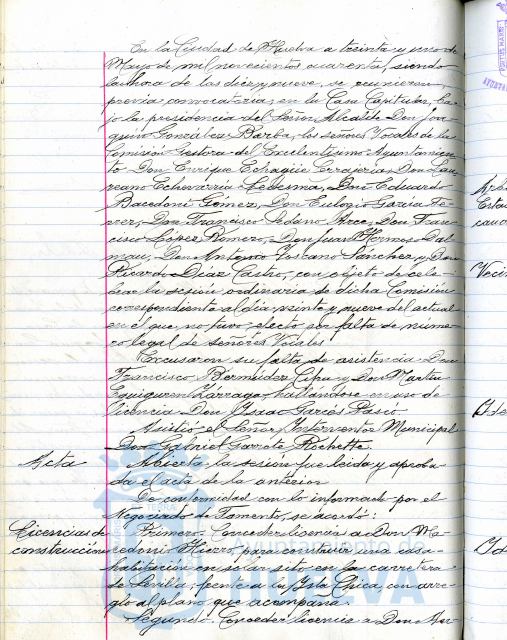 En la Ciudad de Huelva a treinta y uno de
Mayo de mil novecientos cuarenta, siendo
la hora de las diez y nueve, se reunieron,
previa convocatoria, en la Casa Capitular, ba-
jo la presidencia del Señor Alcalde Don Joa-
quín González Barba, los señores Vocales de la
Comisión Gestora del Excelentísimo Ayuntamien-
to Don Enrique Echagüe Errajeria, Don Lau-
reano Echevarría Ledesma, Don Eduardo
Bacedoni Gomez, Don Eulogio Garcia
Don Francisco Sedano Arce, Don Fran-
cisco López Romero, Don Juan Hermoso Dal-
mau, Don Antonio Toscano Sánchez, y Don
Ricardo Diaz Castro, con objeto de cele-
brar la sesión ordinaria de dicha Comisión
correspondiente al día veinte y nueve del actual
en el que no tuvo efecto por falta de núme-
ro legal de señores Vocales
Excusaron su falta de asistencia Don
Francisco Bermúdez y Don Martín
Eguiguren Larraga, hallándose en uso de
licencia Don Isaac Garcés Pasco.
Asistió el Señor Interventor Municipal
Don Gabriel Garrote Rochette.
Acta
Abierta la sesión fue leida y aproba-
da el acta de la anterior
De conformidad con lo informado por el
Negociado de Fomento, se acordó:
Licencias de
construcción
Primero. Conceder licencia a Don Ma-
cedonio Hierro, para construir una casa-
habitación en solar sito en la carretera
de Sevilla, frente a la Isla Chica, con arre-
glo al plano que acompaña.
Segundo. Conceder licencia a Don Mar-
Ayuntamiento de
HUELVA